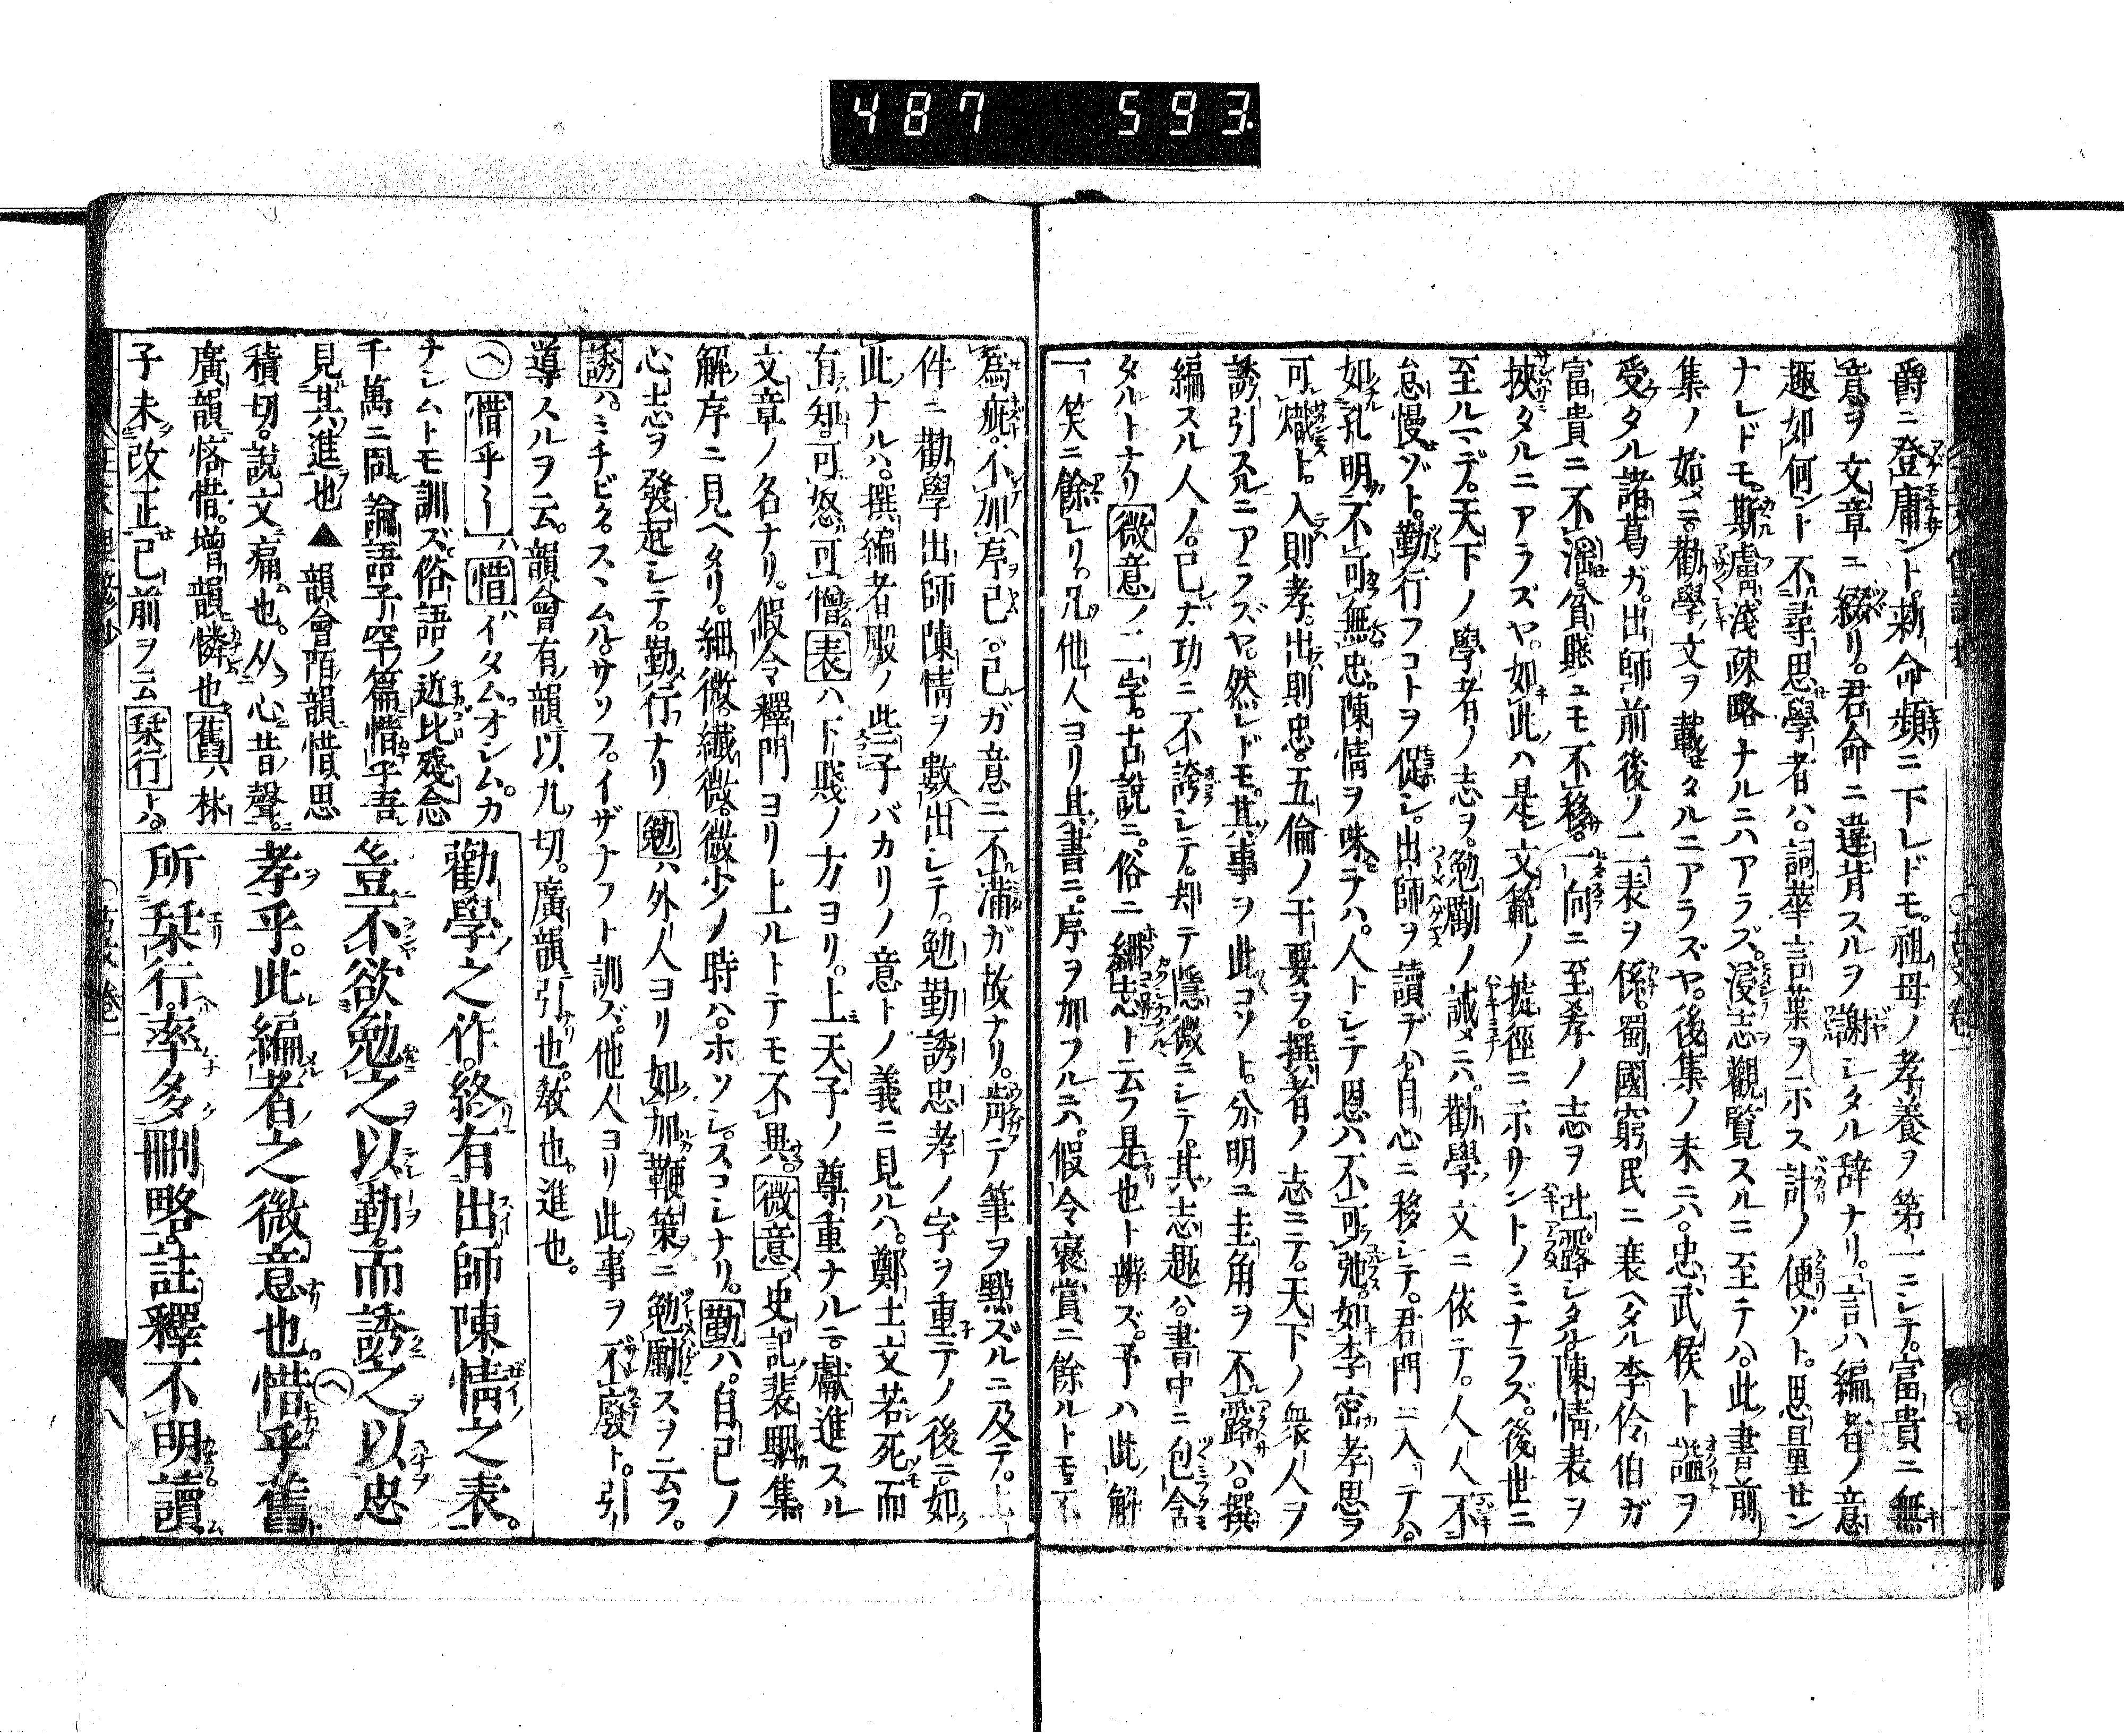 487 593.
爵ニ登庸ント。勅命頻ニ下レドモ。祖母ノ孝養ヲ第一ニシテ。富貴ニ無
意ヲ文章ニ綴リ。君命ニ違背スルヲ謝シタル辞ナリ。言ハ編者ノ意
趣如何ント不尋思學者ハ。詞華言葉ヲ示ス計ノ便ゾト。思量セン
ナレドモ。斯膚淺疎略ナルニハアラズ。浸志觀覧スルニ至テハ。此書前
集ノ始メニ。勸學ノ文ヲ載タルニアラズヤ。後集ノ末ニハ。忠武侯ト謚ヲ
受タル諸葛ガ。出師前後ノ二表ヲ係。蜀國窮民ニ衰ヘタル李伶伯ガ
富貴ニ不滛。貧賤ニモ不移。一向ニ至孝ノ志ヲ吐露シタル。陳情表ヲ
挾タルニアラズヤ。如此ハ是レ文範ノ捷徑ニ示サントノミナラズ。後世ニ
至ルマデ。天下ノ學者ノ志ヲ。勉勵ノ誡メニハ。勸學文ニ依テ。人人不
怠慢ゾト。勤行フコトヲ促シ。出師ヲ讀デハ自心ニ移シテ。君門ニ入テハ。
如孔明不可無忠。陳情ヲ味テハ。人トシテ恩ハ不可弛。如李密孝思ヲ
可熾ト。入則孝。出則忠。五倫ノ干要ヲ。撰者ノ志ニテ。天下ノ衆人ヲ
誘引スルニアラズヤ。然レドモ。其事ヲ此コソト。分明ニ圭角ヲ不露ハ。撰
編スル人ノ。已ガ功ニ不誇シテ。却テ隱微ニシテ。其志趣ハ。書中ニ包含
タルトナリ微意ノ二字。古説ニ。俗ニ細志ト云フ是也ト辨ズ。予ハ此解
一笑ニ餘レリ。凡他人ヨリ其書ニ。序ヲ加フルニハ。假令褒賞ニ餘ルトモ不
爲疵。不加序已。已ガ意ニ不滿ガ故ナリ。肯テ筆ヲ點ズルニ及テ。上
件ニ勸學出師陳情ヲ數出シテ。勉勤誘忠孝ノ字ヲ重テノ後ニ如
此ナルハ。撰編者殿ノ些子バカリノ意トノ義ニ見ルハ。鄭士文若死而
有知。可怒可憎表ハ下賤ノ方ヨリ。上天子ノ尊重ナルニ獻進スル
文章ノ名ナリ。假令釋門ヨリ上ルトテモ不異。微意史記裴駰集
解序ニ見ヘタリ。細微。纎微。微少ノ時ハ。ホソシ。スコシナリ。勤ハ。自己ノ
心志ヲ發起シテ。勤行ナリ勉ハ外人ヨリ如加鞭策ニ勉勵スヲ云フ。
誘ハミチビク。スヽム。ハサソフ。イザナフト訓ズ。他人ヨリ此事ヲ不廢ト。引
導スルヲ云。韻會有韻以九切。廣韻引也。敎也。進也。
勸學之作。終有出師陳情之表。
豈不欲勉之以勤。而誘之以忠
孝乎。此編者之微意也。惜乎舊
所栞行。率多刪略。註釋不明讀
ヘ惜乎 惜イタム。オシム。カ
ナシムトモ訓ズ俗語ノ近比殘念
千萬ニ同論語子罕篇惜乎吾
見其進也▲韻會陌韻惜思
積切。說文痛也。从心昔聲。
廣韻悋惜。增韻憐也。舊ハ林
子未改正已前ヲ云栞行トハ。